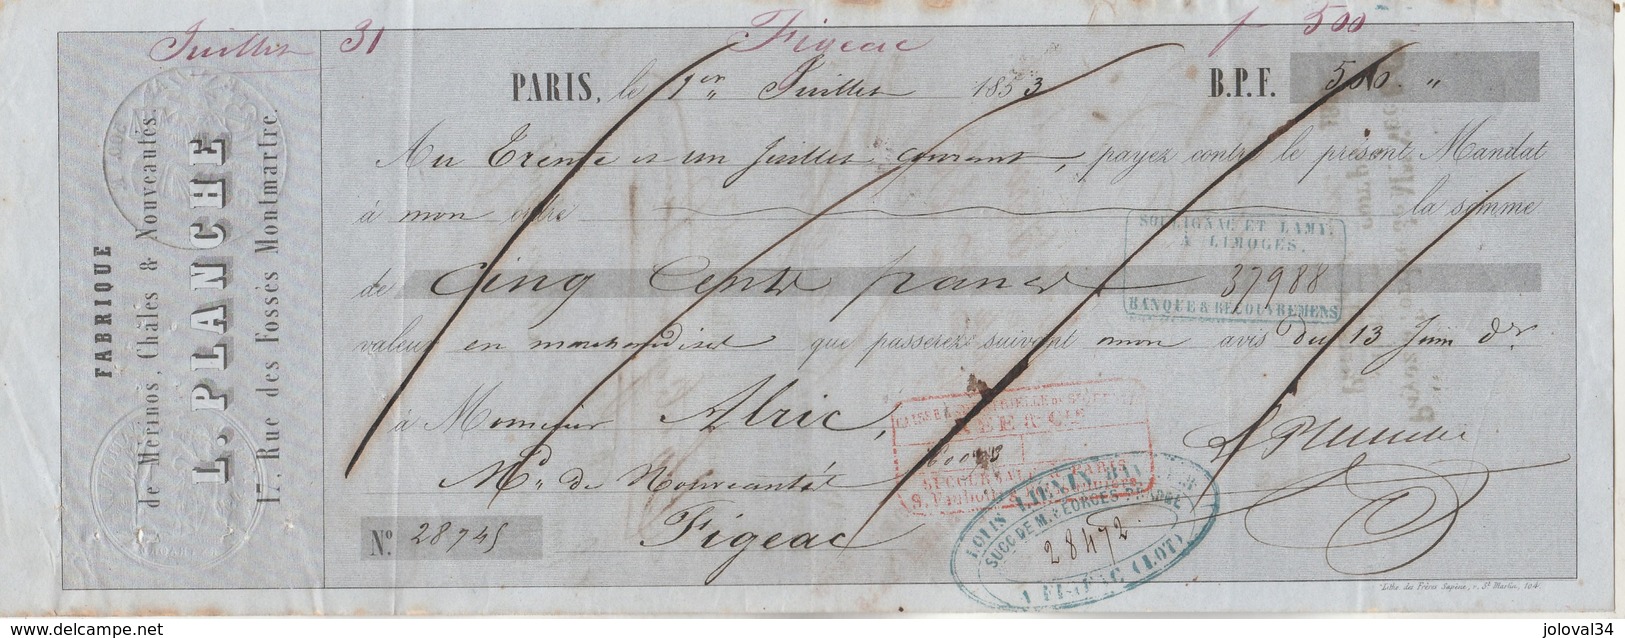 Juillet 31 Figeac f 500
PARIS, le 1er Juillet 1853 B.P.F. 500 "
Au Trente et un Juillet courant, payez contre le présent Mandat
à mon ordre la somme
de Cinq Cents francs
valeur en marchandises que passerez suivant mon avis du 13 Juin dr
à Monsieur Alric,
Md de Nouveautés
Figeac
No. 28745
FABRIQUE
de Mérinos, Châles & Nouveautés.
L. PLANCHE
17, Rue des Fossés Montmartre.
SOULIGNAC ET LAMY,
A LIMOGES.
37988
BANQUE & RECOUVREMENS
SUCCURSALE PARIS
LOUIS
SUCC. DE M. GEORGES
28472
A FIGEAC (LOT)
L Planche
Lith. des Frères Sapène, r. St Martin, 104.
www.delcampe.net
joloval34